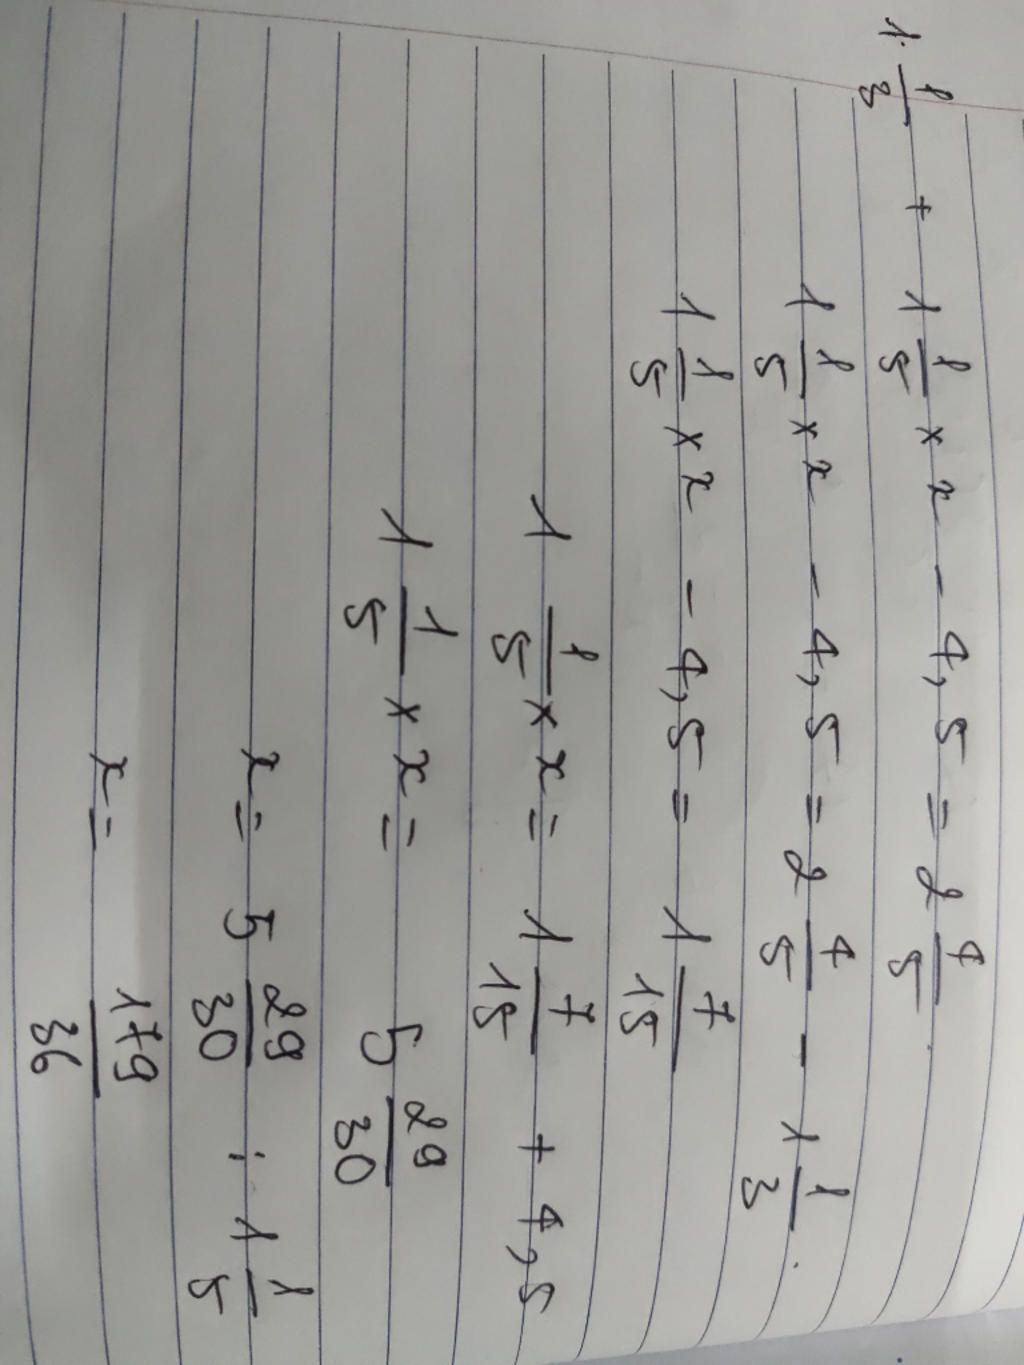 1 1/3 + 1 1/5 × x - 4,5 = 2 4/5
1 1/5 × x - 4,5 = 2 4/5 - 1 1/3
1 1/5 × x - 4,5 = 1 7/15
1 1/5 × x = 1 7/15 + 4,5
1 1/5 × x = 5 29/30
x = 5 29/30 : 1 1/5
x = 179/36